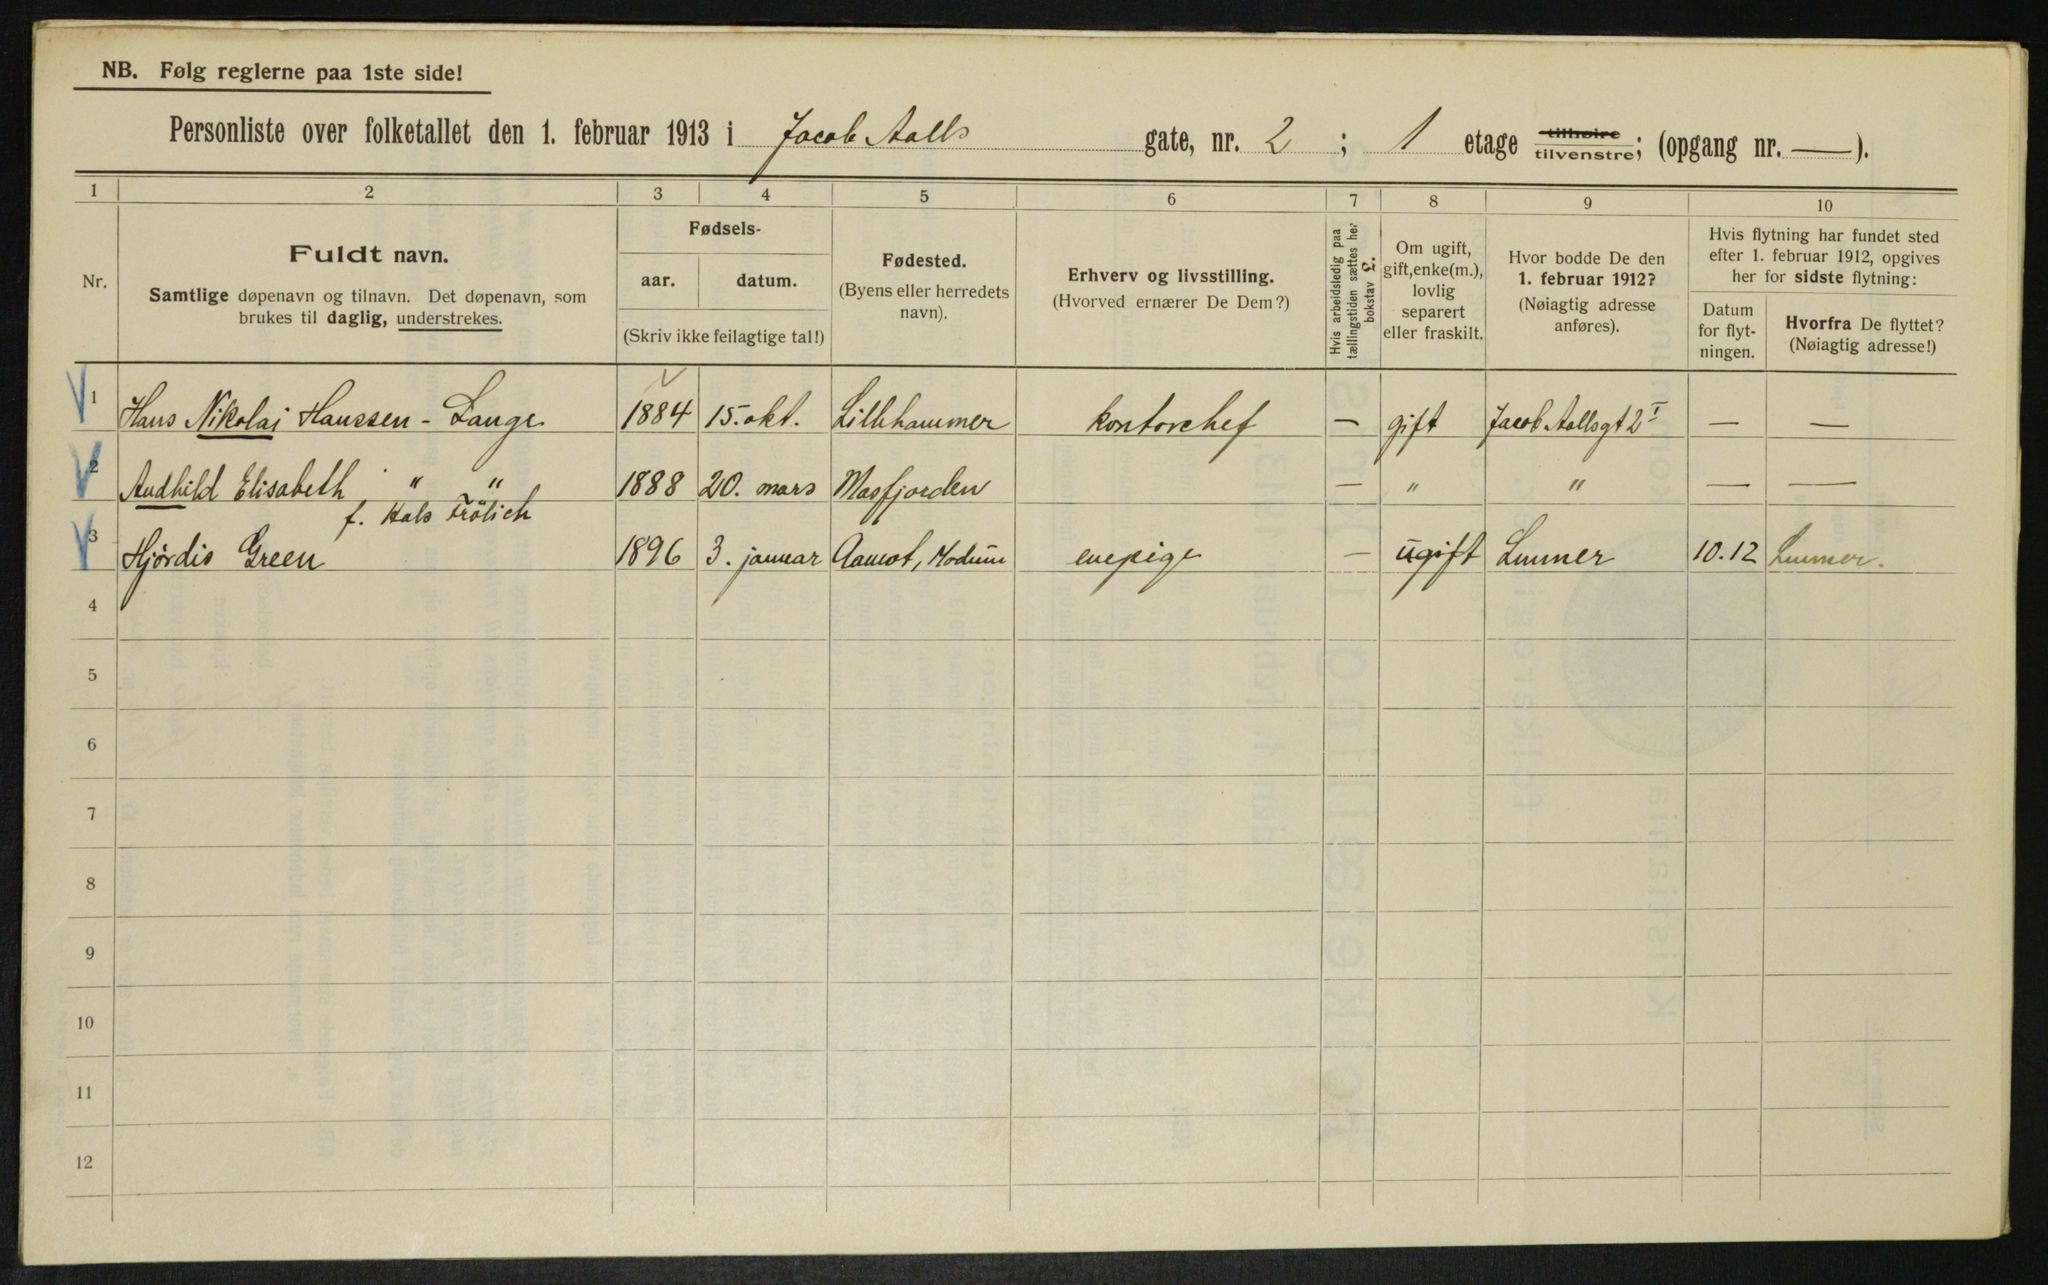 NB. Følg reglerne paa 1ste side!
Personliste over folketallet den 1. februar 1913 i Jacob Aalls gate, nr. 2 ; 1 etage tilhøire tilvenstre; (opgang nr. — ).
1 2 3 4 5 6 7 8 9 10
Nr.
Fuldt navn.
Samtlige døpenavn og tilnavn. Det døpenavn, som
brukes til daglig, understrekes.
Fødsels-
aar. datum.
(Skriv ikke feilagtige tal!)
Fødested.
(Byens eller herredets
navn).
Erhverv og livsstilling.
(Hvorved ernærer De Dem?)
Hvis arbeidsledig paa
tællingstiden sættes her
bokstav L.
Om ugift,
gift, enke(m.),
lovlig
separert
eller fraskilt.
Hvor bodde De den
1. februar 1912?
(Nøiagtig adresse
anføres).
Hvis flytning har fundet sted
efter 1. februar 1912, opgives
her for sidste flytning:
Datum
for flyt-
ningen.
Hvorfra De flyttet?
(Nøiagtig adresse!)
1 Hans Nikolai Hanssen - Lange 1884 15. okt. Lillehammer kontorchef — gift Jacob Aallsgt 2 I — —
2 Audhild Elisabeth " " 1888 20. mars Masfjorden — " " — —
f. Hals Frölich
3 Hjørdis Green 1896 3. januar Aamot, Modum enepige — ugift Lunner 10.12 Lunner.
4
5
6
7
8
9
10
11
12